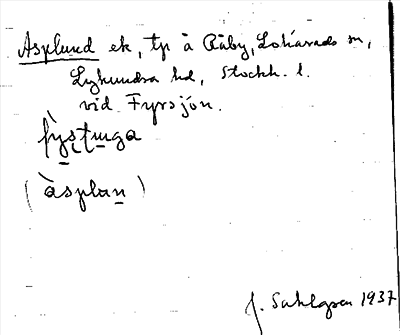 Asplund ek, tp å Råby, Lohärads sn,
Lyhundra hd, Stockh. l.
vid Fyrsjön.
fỳstuga
(àsplan)
J. Sahlgren 1937